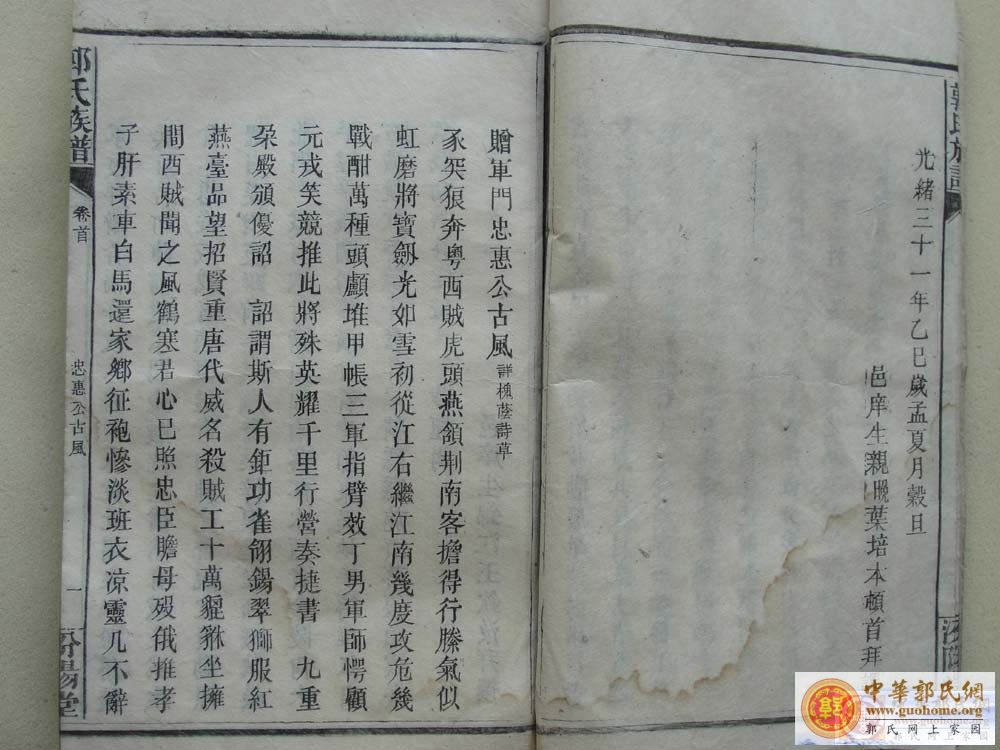 光緒三十一年乙巳歲孟夏月穀旦
邑庠生親晚葉培本頓首拜
贈軍門忠惠公古風 詳槐蔭詩草
豕突狼奔粵西賊虎頭燕頷荊南客擔得行縢氣似
虹磨將寶劍光如雪初從江右繼江南幾度攻危幾
戰酣萬種頭顱堆甲帳三軍指臂效丁男軍師愕顧
元戎笑競推此將殊英耀千里行營奏捷書 九重
朶殿頒優詔 詔謂斯人有鉅功雀翎錫翠獅服紅
燕臺品望招賢重唐代威名殺賊工十萬貔貅坐擁
間西賊聞之風鶴寒君心已照忠臣膽母歿俄摧孝
子肝素車白馬還家鄉征袍慘淡班衣凉靈几不辭
郭氏族譜
卷首
忠惠公古風
一
汾陽堂
中華郭氏網
www.guohome.org
郭氏网上家园